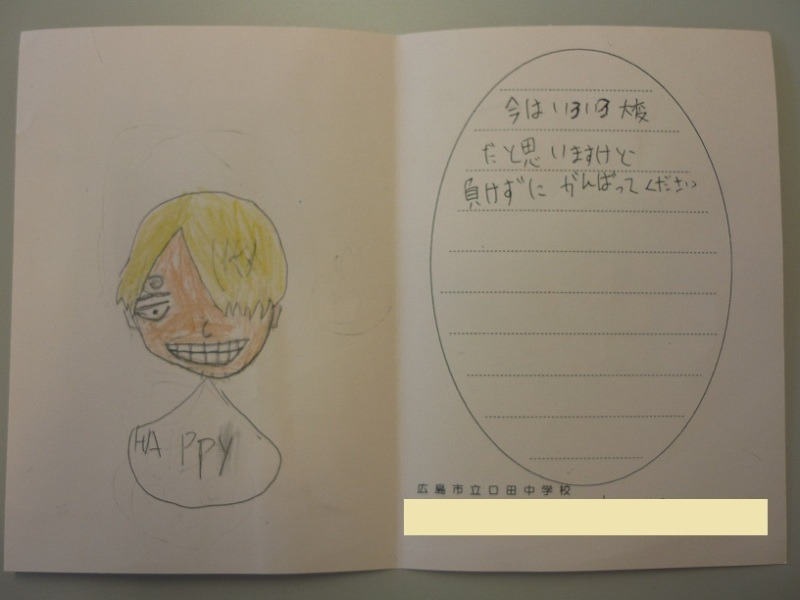 HAPPY
今はいろいろ大変
だと思いますけど
負けずにがんばってください
広島市立口田中学校